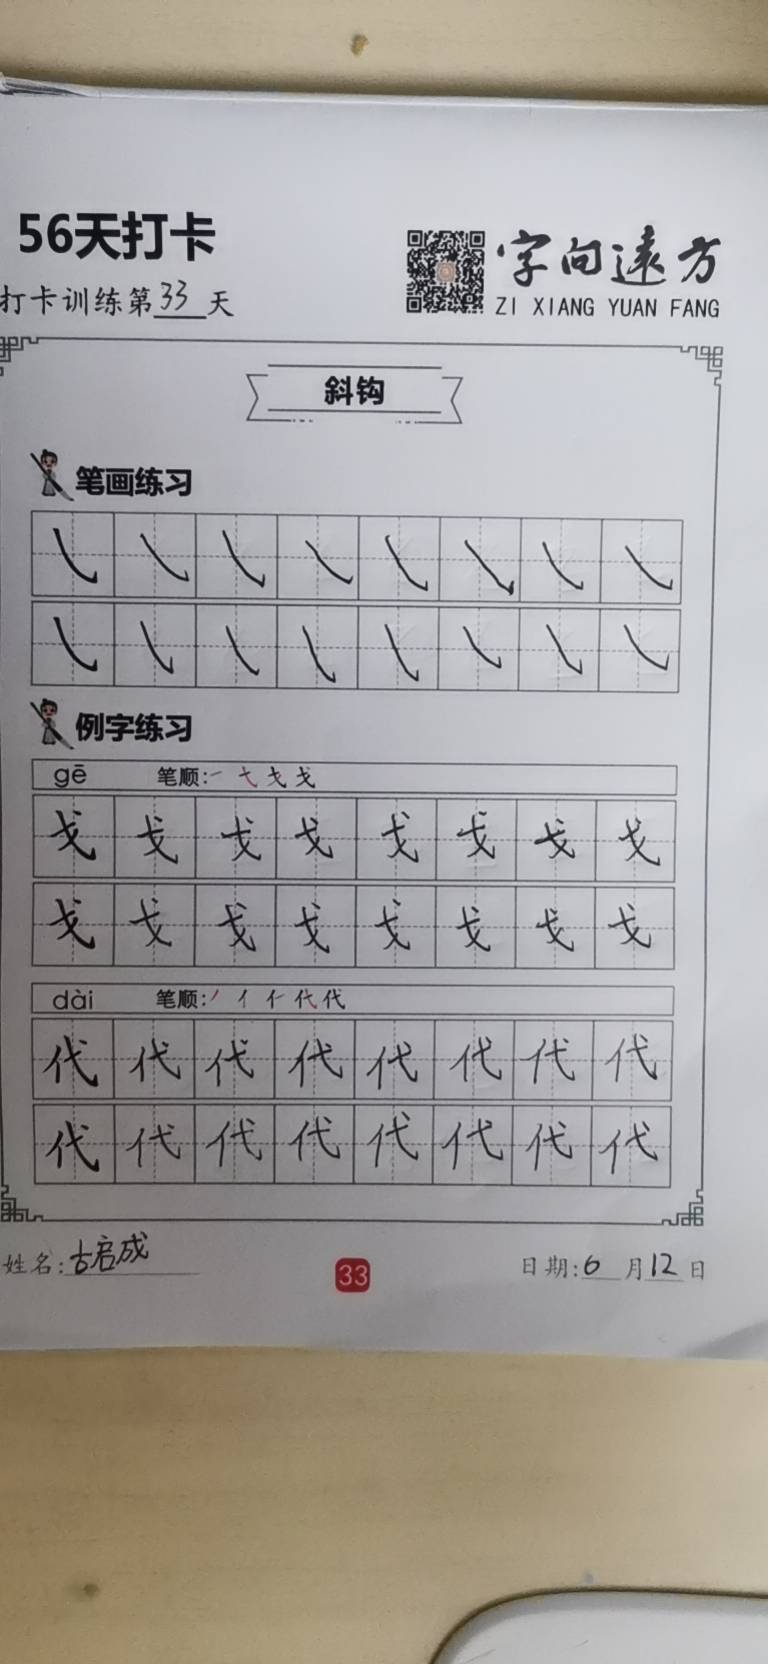 56天打卡
打卡训练第33天
字向遠方
ZI XIANG YUAN FANG
斜钩
笔画练习
㇂ ㇂ ㇂ ㇂ ㇂ ㇂ ㇂ ㇂
㇂ ㇂ ㇂ ㇂ ㇂ ㇂ ㇂ ㇂
例字练习
gē 笔顺:一 弋 戈 戈
戈 戈 戈 戈 戈 戈 戈 戈
戈 戈 戈 戈 戈 戈 戈 戈
dài 笔顺:丿 亻 仁 代 代
代 代 代 代 代 代 代 代
代 代 代 代 代 代 代 代
姓名:古启成
33
日期:6月12日